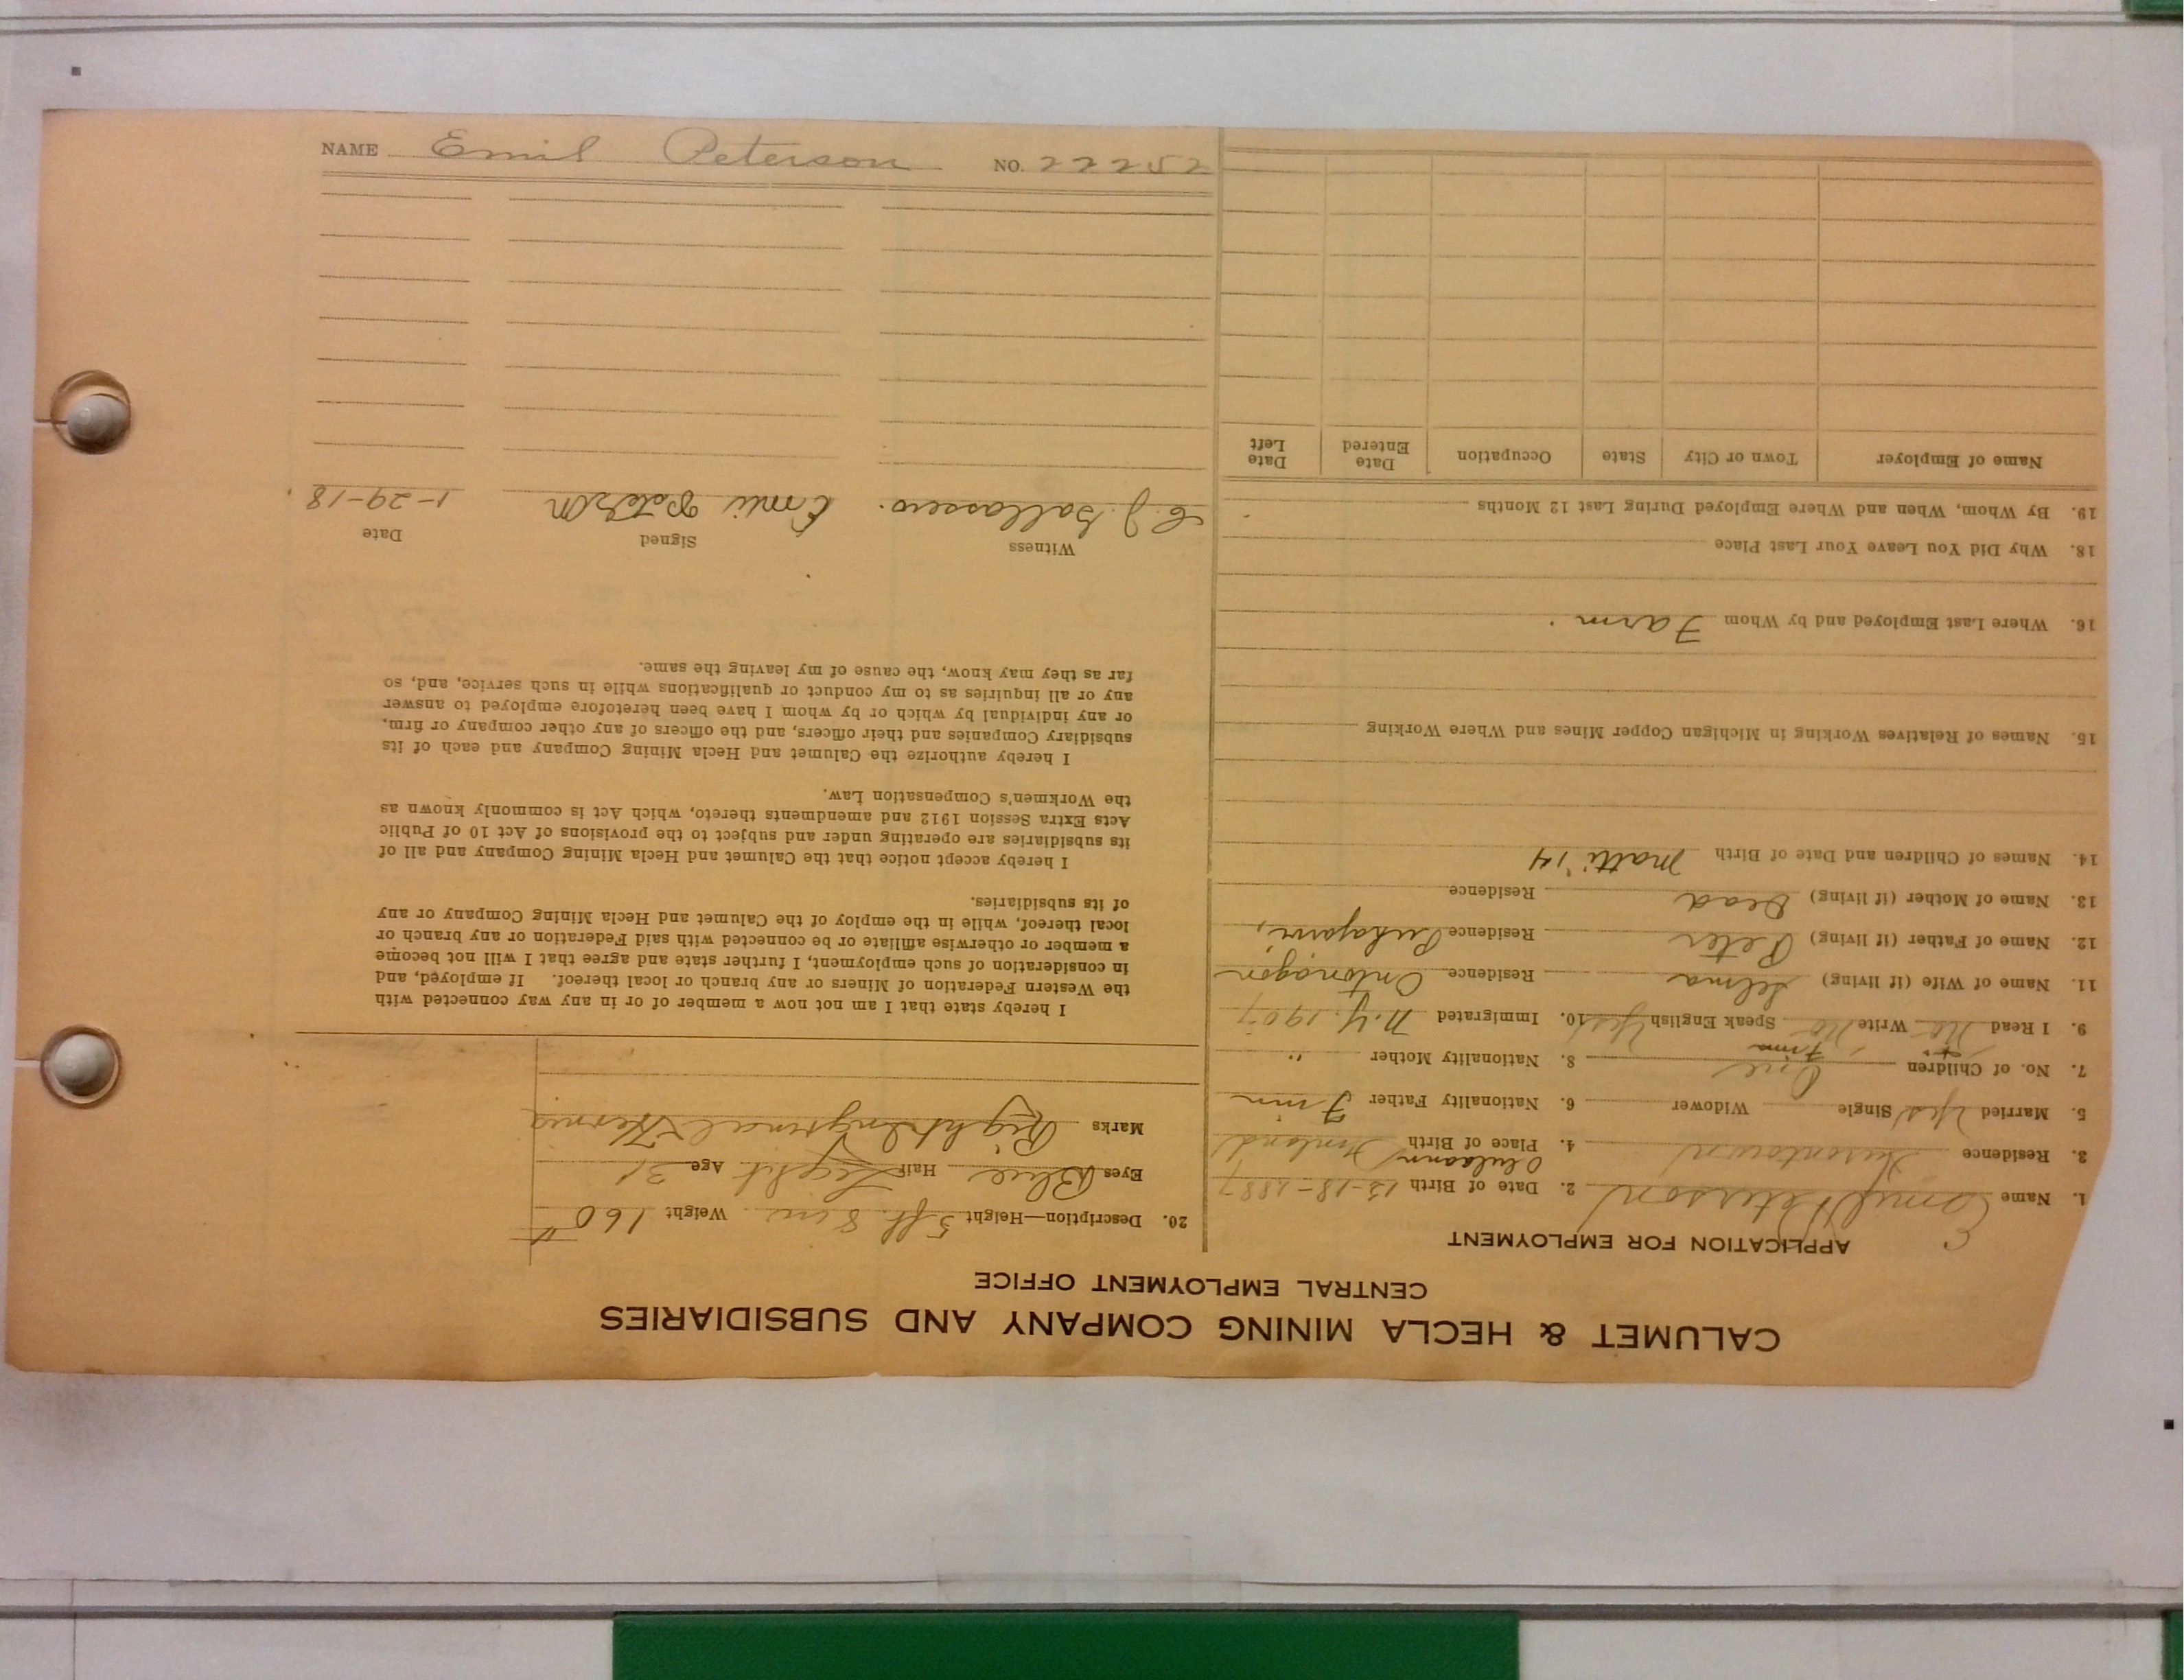 CALUMET & HECLA MINING COMPANY AND SUBSIDIARIES
CENTRAL EMPLOYMENT OFFICE
APPLICATION FOR EMPLOYMENT
1. Name Emil Peterson 2. Date of Birth 12-18-1887
3. Residence 4. Place of Birth Finland
5. Married Yes Single Widower 6. Nationality Father Finn
7. No. of Children One 8. Nationality Mother "
Finn
9. I Read No Write No Speak English Yes 10. Immigrated N.Y. 1907
11. Name of Wife (if living) Selma Residence Ontonagon
12. Name of Father (if living) Peter Residence
13. Name of Mother (if living) Dead Residence
14. Names of Children and Date of Birth Matti '14
15. Names of Relatives Working in Michigan Copper Mines and Where Working
16. Where Last Employed and by Whom Farm.
18. Why Did You Leave Your Last Place
19. By Whom, When and Where Employed During Last 12 Months
Name of Employer Town or City State Occupation Date Entered Date Left
20. Description—Height 5 ft. 8 in. Weight 160 #
Eyes Blue Hair Light Age 31
Marks Right Inguinal Hernia
I hereby state that I am not now a member of or in any way connected with
the Western Federation of Miners or any branch or local thereof. If employed, and
in consideration of such employment, I further state and agree that I will not become
a member or otherwise affiliate or be connected with said Federation or any branch or
local thereof, while in the employ of the Calumet and Hecla Mining Company or any
of its subsidiaries.
I hereby accept notice that the Calumet and Hecla Mining Company and all of
its subsidiaries are operating under and subject to the provisions of Act 10 of Public
Acts Extra Session 1912 and amendments thereto, which Act is commonly known as
the Workmen's Compensation Law.
I hereby authorize the Calumet and Hecla Mining Company and each of its
subsidiary Companies and their officers, and the officers of any other company or firm,
or any individual by which or by whom I have been heretofore employed to answer
any or all inquiries as to my conduct or qualifications while in such service, and, so
far as they may know, the cause of my leaving the same.
Witness Signed Date
Emil Peterson 1-29-18.
NAME Emil Peterson NO. 22252